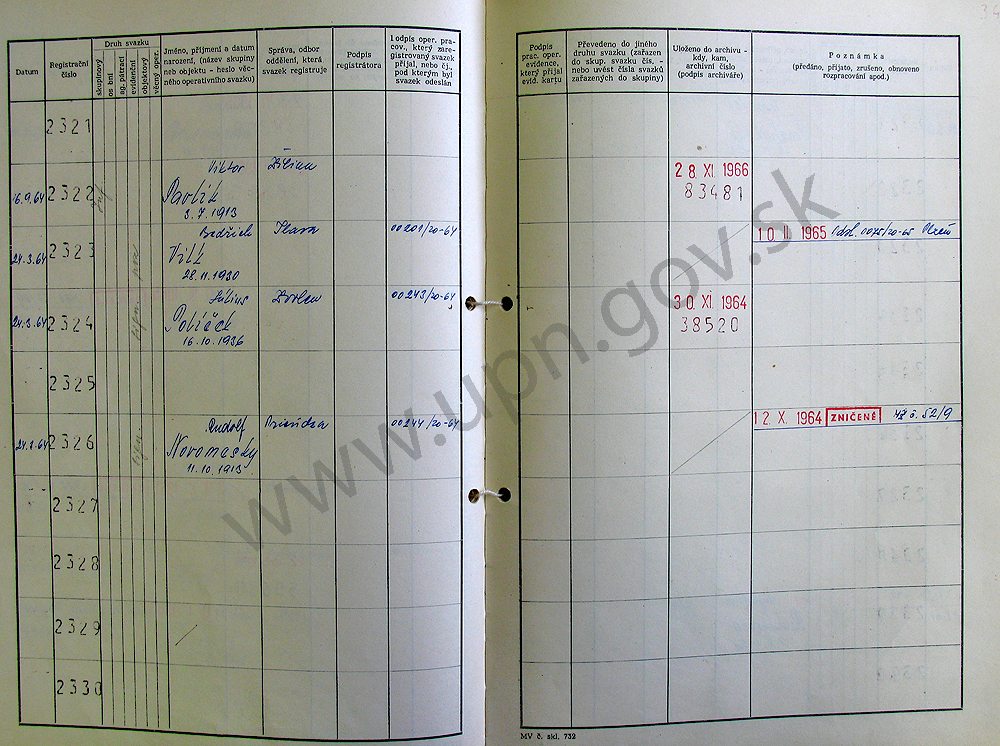 Datum
Registrační číslo
Druh svazku
skupinový
os bní
ag. pátrací
evidenční
objektový
věcný oper.
Jméno, příjmení a datum
narození, (název skupiny
neb objektu - heslo věc-
ného operativního svazku)
Správa, odbor
oddělení, která
svazek registruje
Podpis
registrátora
Podpis oper. pra-
cov., který zare-
gistrovaný svazek
přijal, nebo čj.,
pod kterým byl
svazek odeslán
Podpis
prac. oper.
evidence,
který přijal
evid. kartu
Převedeno do jiného
druhu svazku (zařazen
do skup. svazku čís. -
nebo uvést čísla svazků
zařazených do skupiny)
Uloženo do archivu -
kdy, kam,
archivní číslo
(podpis archiváře)
Poznámka
(předáno, přijato, zrušeno, obnoveno
rozpracování apod.)
2321
16.9.64 2322 Viktor Žilina 28 XI. 1966
Pavlík 83481
3.7.1913
24.3.64 2323 Bedřich Ilava 00201/20-64 10 II. 1965 0075/20-65 Plzeň
Vlk
28.11.1930
24.3.64 2324 Július Zvolen 00243/20-64 30 XI. 1964
Poliáček 38520
16.10.1936
2325
2326 Rudolf Prievidza 00244/20-64 12 X. 1964 ZNIČENÉ č. 52/9
Novomeský
11.10.1913
2327
2328
2329
2330
MV č. skl. 732
www.upn.gov.sk